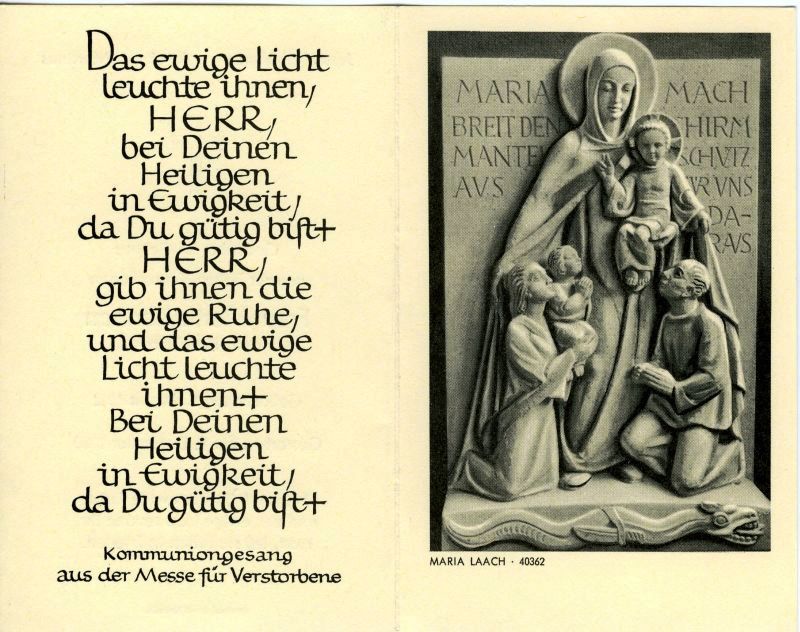 Das ewige Licht
leuchte ihnen,
HERR,
bei Deinen
Heiligen
in Ewigkeit,
da Du gütig biſt+
HERR,
gib ihnen die
ewige Ruhe,
und das ewige
Licht leuchte
ihnen+
Bei Deinen
Heiligen
in Ewigkeit,
da Du gütig biſt+
Kommuniongesang
aus der Messe für Verstorbene
MARIA MACH
BREIT DEN CHIRM
MANTEL SCHVTZ
AVS VNS
DA-
RAVS
MARIA LAACH · 40362